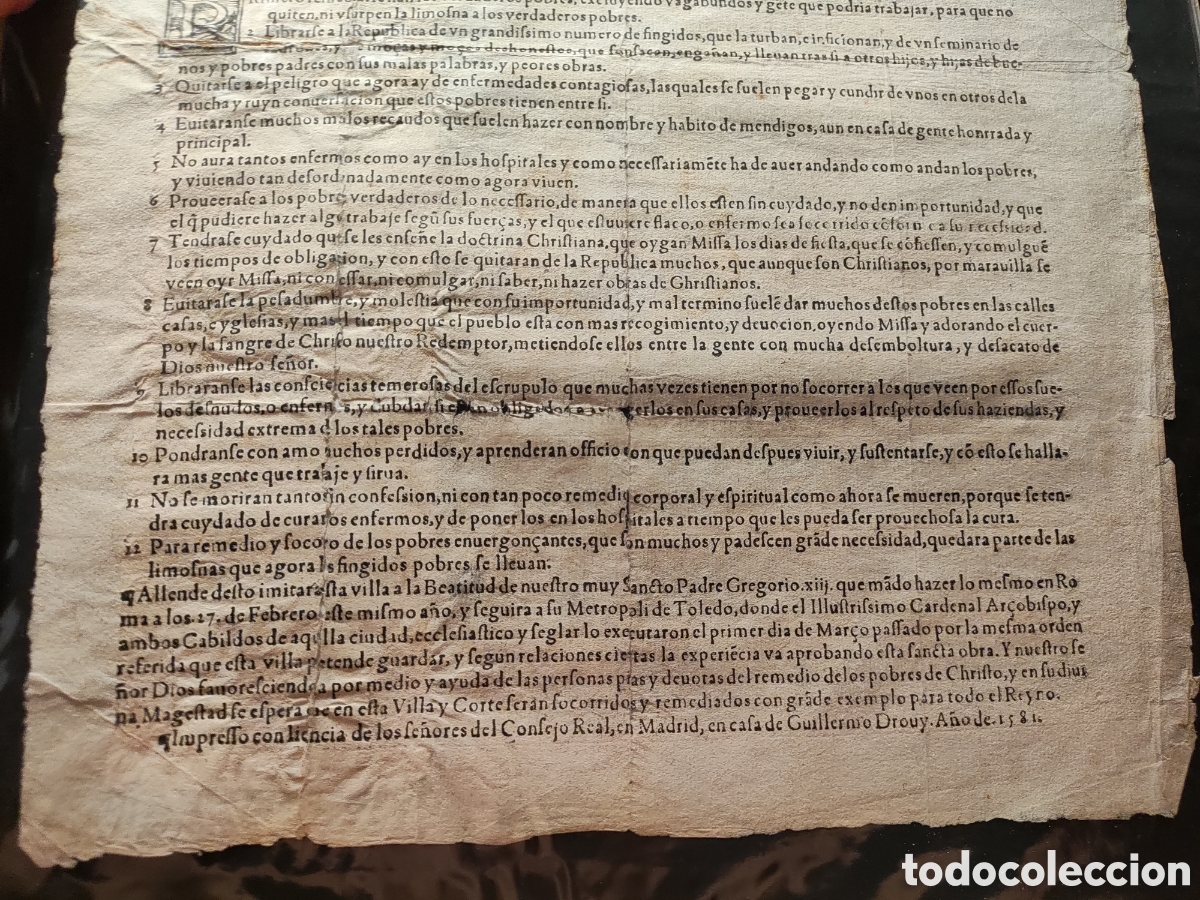 pobres, excluyendo vagabundos y gẽte que podria trabajar, para que no
quiten, ni vsurpen la limosna a los verdaderos pobres.
2 Librarse a la Republica de vn grandissimo numero de fingidos, que la turban, e inficionan, y de vn seminario de
y moças y moços deshonestos, que sonsacan, engañan, y lleuan tras si a otros hijos, y hijas de bue-
nos y pobres padres con sus malas palabras, y peores obras.
3 Quitarse a el peligro que agora ay de enfermedades contagiosas, las quales se suelen pegar y cundir de vnos en otros de la
mucha y ruyn conuersacion que estos pobres tienen entre si.
4 Euitaranse muchos malos recaudos que suelen hazer con nombre y habito de mendigos, aun en casa de gente honrrada y
principal.
5 No aura tantos enfermos como ay en los hospitales y como necessariamẽte ha de auer andando como andan los pobres,
y viuiendo tan desordenadamente como agora viuen.
6 Proueerase a los pobres verdaderos de lo necessario, de manera que ellos esten sin cuydado, y no den importunidad, y que
el q̃ pudiere hazer algo trabaje segũ sus fuerças, y el que estuuiere flaco, o enfermo sea socorrido cõform e a su necessidad.
7 Tendrase cuydado que se les enseñe la doctrina Christiana, que oygan Missa los dias de fiesta, que se cõfiessen, y comulguẽ
los tiempos de obligacion, y con esto se quitaran de la Republica muchos, que aunque son Christianos, por marauilla se
veen oyr Missa, ni confessar, ni comulgar, ni saber, ni hazer obras de Ghristianos.
8 Euitarase la pesadumbre, y molestia que con su importunidad, y mal termino suelẽ dar muchos destos pobres en las calles
casas, e yglesias, y mas el tiempo que el pueblo esta con mas recogimiento, y deuocion, oyendo Missa y adorando el cuer-
po y la sangre de Christo nuestro Redemptor, metiendose ellos entre la gente con mucha desemboltura, y desacato de
Dios nuestro señor.
9 Libraranse las consciẽcias temerosas del escrupulo que muchas vezes tienen por no socorrer a los que veen por essos sue-
los desnudos, o enfermos, y dubdar si estan obligados a en sus casas, y proueerlos al respeto de sus haziendas, y
necessidad extrema de los tales pobres.
10 Pondranse con amo muchos perdidos, y aprenderan officio con que puedan despues viuir, y sustentarse, y cõ esto se halla-
ra mas gente que trabaje y sirua.
11 No se moriran tantos sin confession, ni con tan poco remedio corporal y espiritual como ahora se mueren, porque se ten-
dra cuydado de curar los enfermos, y de poner los en los hospitales a tiempo que les pueda ser prouechosa la cura.
12 Para remedio y socorro de los pobres enuergonçantes, que son muchos y padescen grãde necessidad, quedara parte de las
limosnas que agora los fingidos pobres se lleuan:
¶ Allende desto imitara esta villa a la Beatitud de nuestro muy Sancto Padre Gregorio. xiij. que mãdo hazer lo mesmo en Ro
ma a los. 27. de Febrero deste mismo año, y seguira a su Metropoli de Toledo, donde el Illustrissimo Cardenal Arçobispo, y
ambos Cabildos de aquella ciudad, ecclesiastico y seglar lo executaron el primer dia de Março passado por la mesma orden
referida que esta villa pretende guardar, y segun relaciones ciertas la experiẽcia va aprobando esta sancta obra. Y nuestro se
ñor Dios fauoresciendola por medio y ayuda de las personas pias y deuotas del remedio de los pobres de Christo, y en su diui
na Magestad se espera que en esta Villa y Corte seran socorridos y remediados con grãde exemplo para todo el Reyno.
¶ Impresso con licencia de los señores del Consejo Real, en Madrid, en casa de Guillermo Drouy. Año de. 1581.
todocoleccion